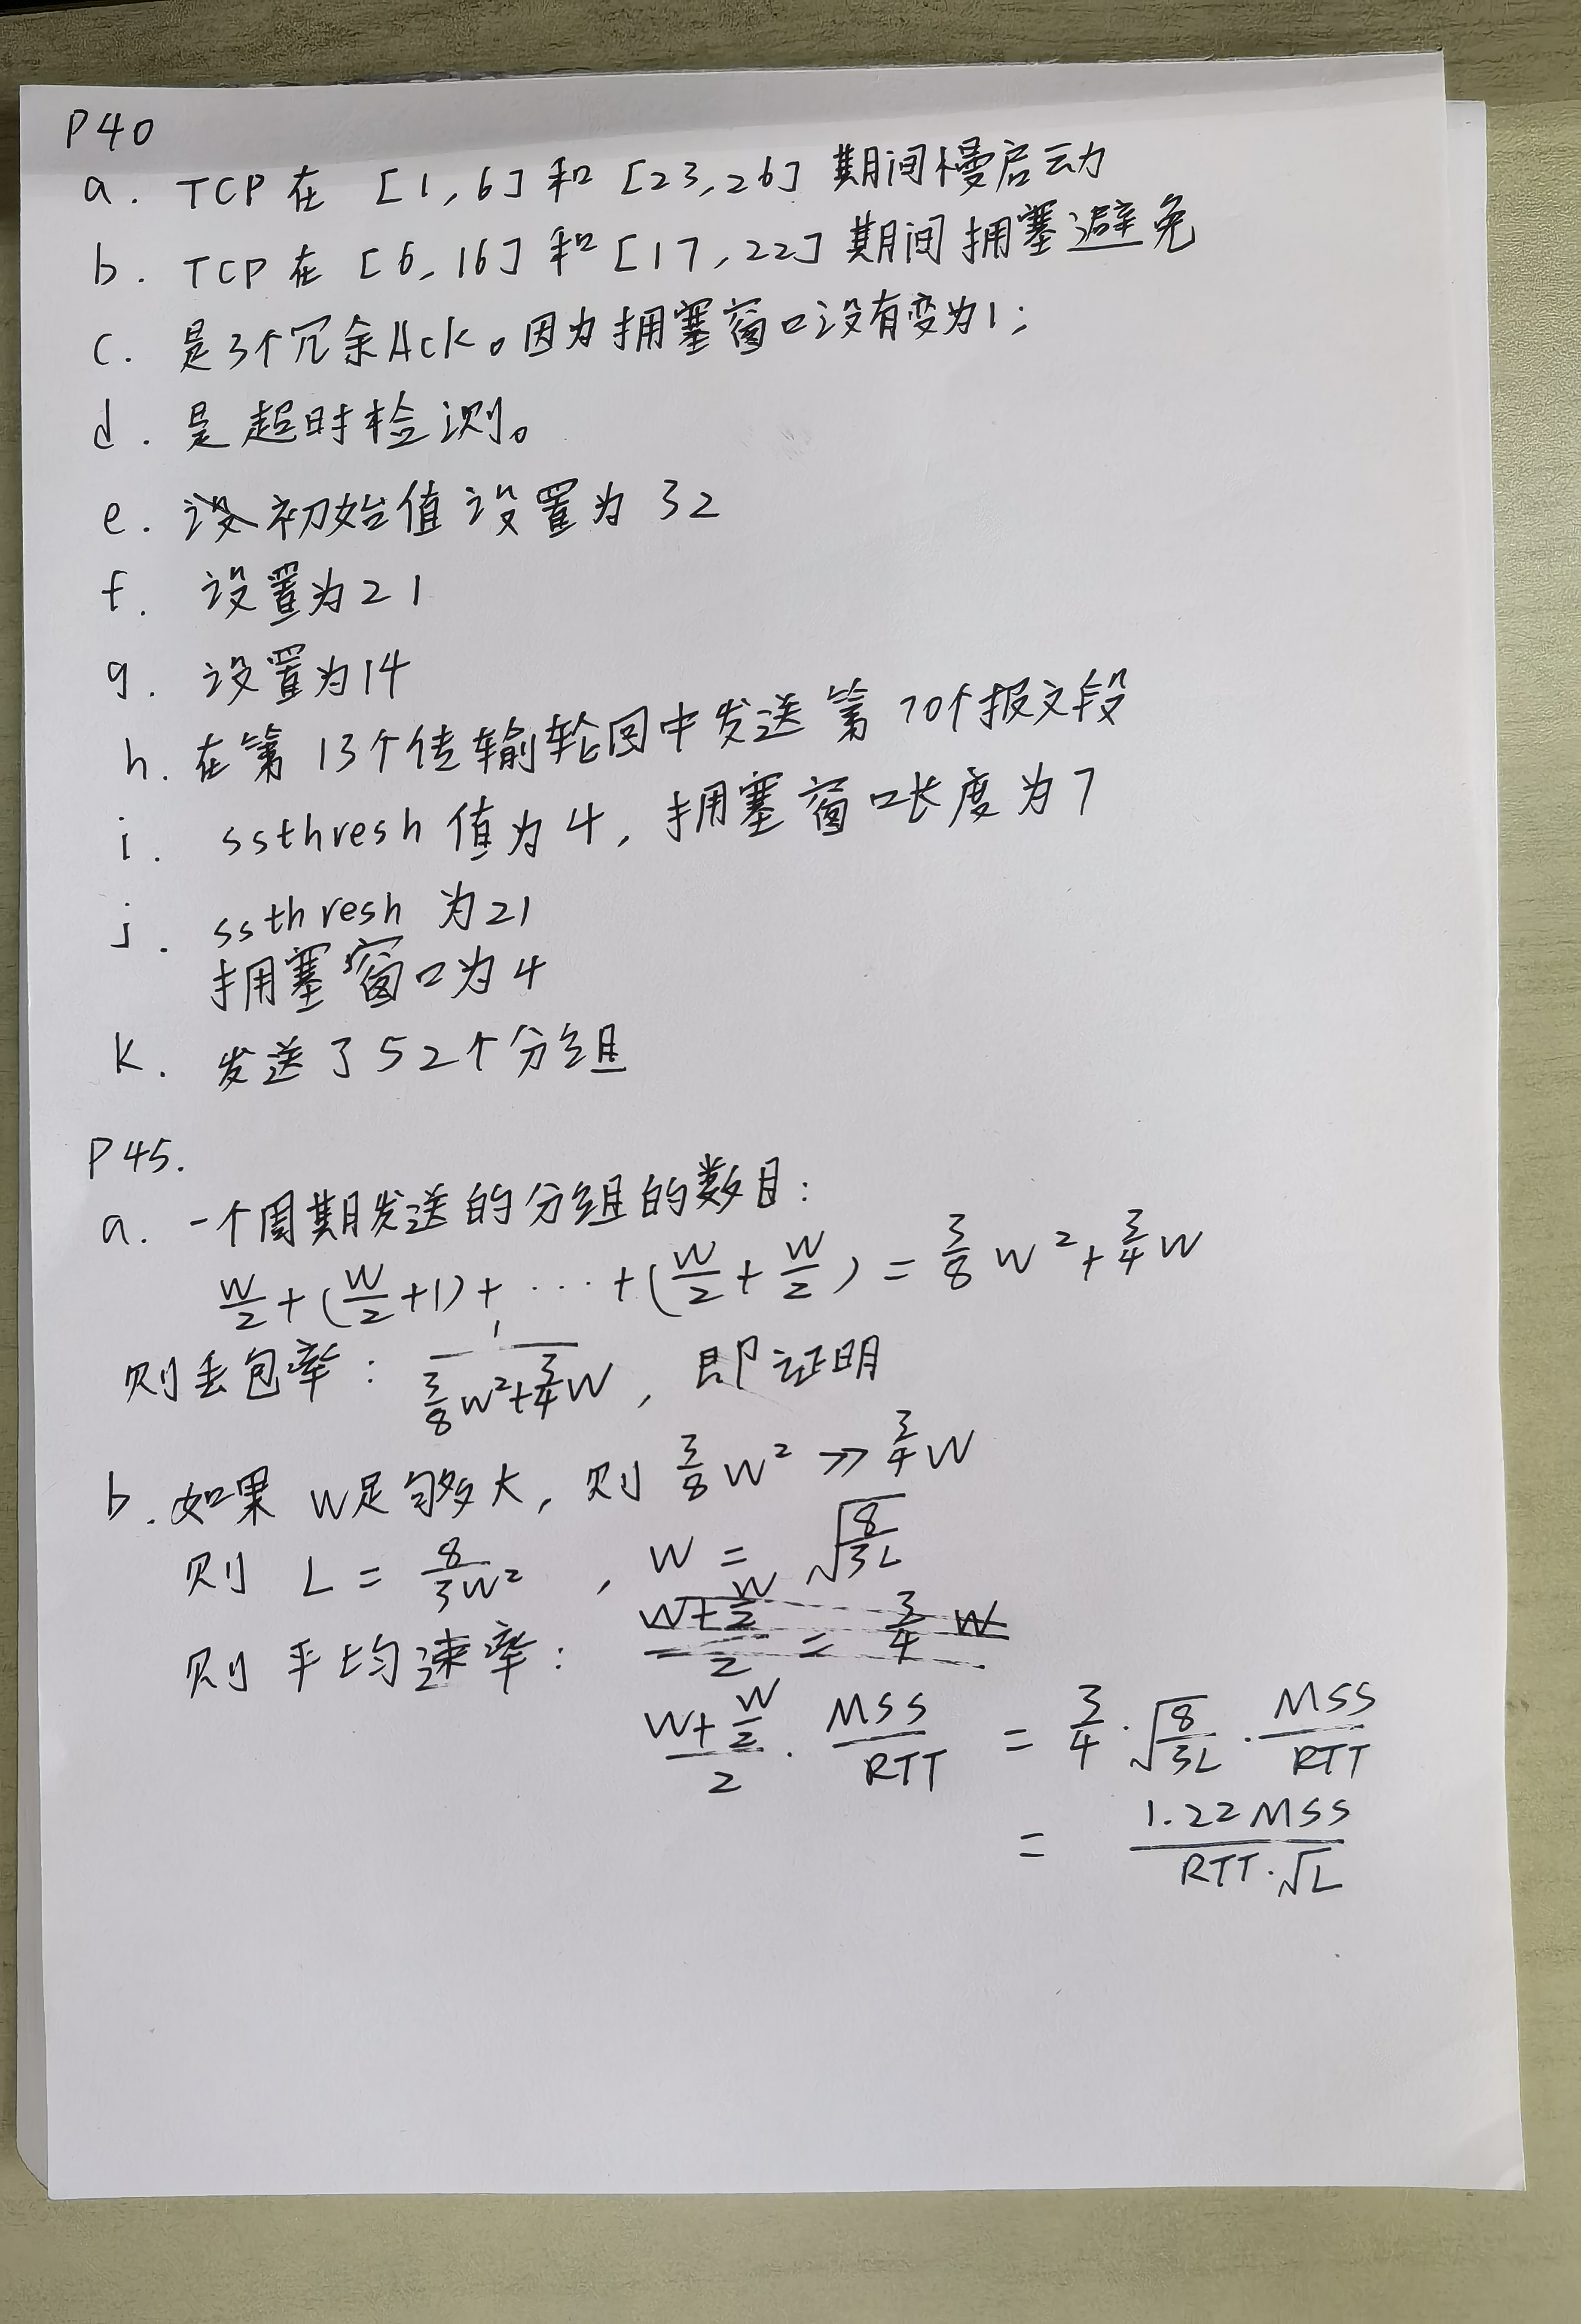 P40
a. TCP在 [1,6] 和 [23,26] 期间慢启动
b. TCP在 [6,16] 和 [17,22] 期间拥塞避免
c. 是3个冗余Ack。因为拥塞窗口没有变为1;
d. 是超时检测。
e. 初始值设置为 32
f. 设置为21
g. 设置为14
h. 在第13个传输轮回中发送第70个报文段
i. ssthresh值为4, 拥塞窗口长度为7
j. ssthresh 为21
拥塞窗口为4
k. 发送了52个分组
P45.
a. 一个周期发送的分组的数目:
W/2 + (W/2+1) + ··· + (W/2 + W/2) = 3/8 W² + 3/4 W
则丢包率: 1/(3/8 W² + 3/4 W), 即证明
b. 如果 W足够大, 则 3/8 W² >> 3/4 W
则 L = 8/3W² , W = √(8/3L)
则平均速率: (W+W/2)/2 = 3/4 W
(W+W/2)/2 · MSS/RTT = 3/4 · √(8/3L) · MSS/RTT
= 1.22MSS/(RTT·√L)